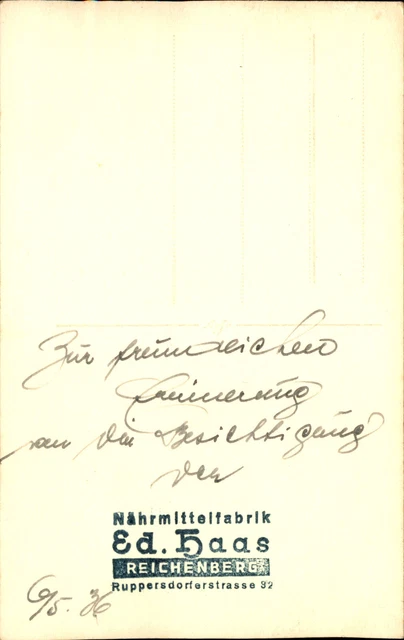 Zur freundlichen
Erinnerung
an die Besichtigung
der
Nährmittelfabrik
Ed. Haas
REICHENBERG
Ruppersdorferstrasse 32
6/5. 36